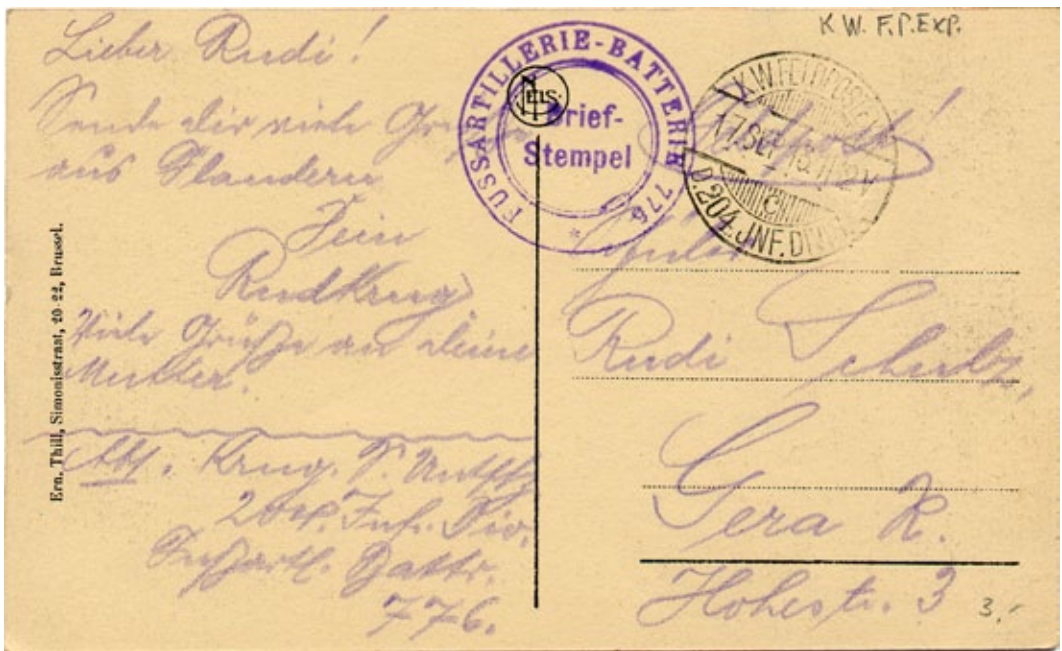 K.W. F.P. EXP.
Lieber Rudi!
Sende dir viele Grüße
aus Flandern
Dein
Rud Krug
Viele Grüße an deine
Mutter.
Abs. Krug.
204. Inf. Div.
Fußartl. Battr.
776.
Ern. Thill, Simonisstraat, 20-22, Brussel.
FUSSARTILLERIE-BATTERIE 776
*
NELS
Brief-
Stempel
K.W. FELDPOST
17 SEP
C
D. 204. JNF. DIV
Feldpost!
Schüler
Rudi Schulz,
Gera R.
Hohestr. 3
3,-